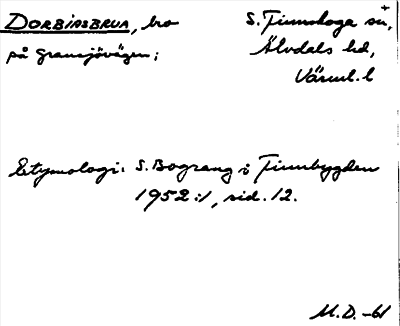 DORBIASBRUA, bro
på Gransjövägen;
S. Finnskoga sn,
Älvdals hd,
Värml. l
Etymologi: S. Bograng i Finnbygden
1952:1, sid. 12.
M.D. -61